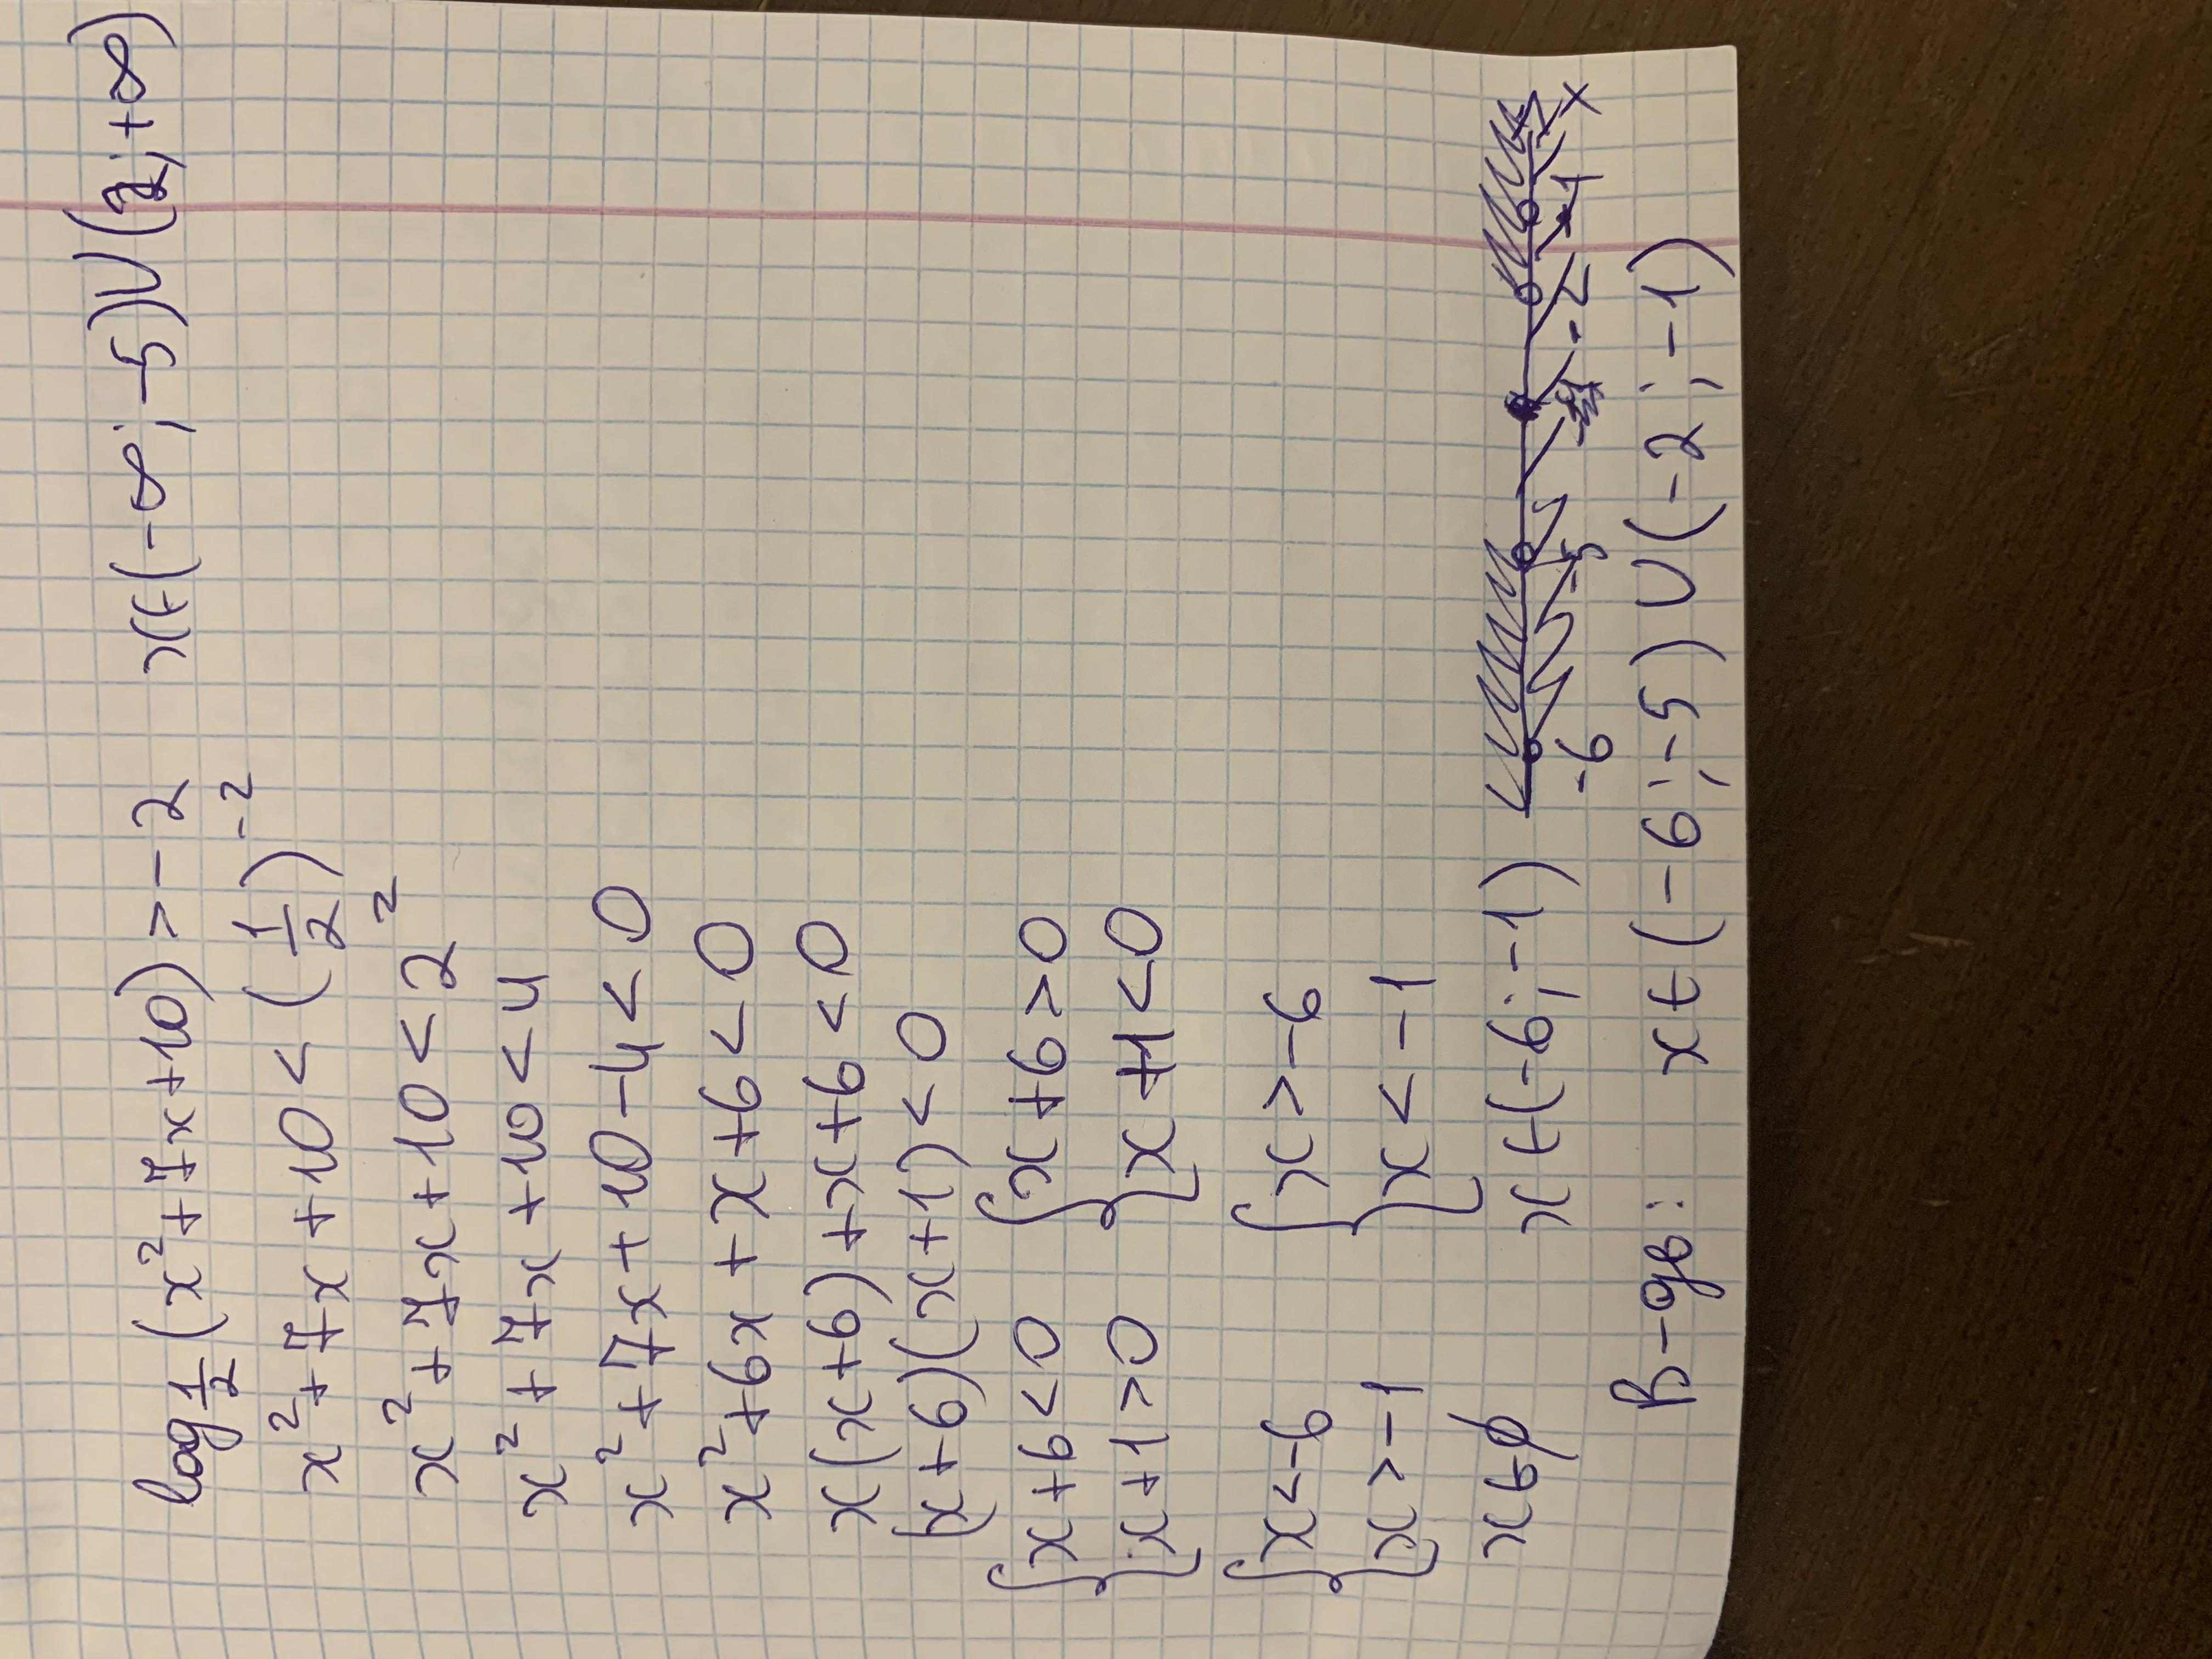 log 1/2 (x² + 7x + 10) > -2 x∈(-∞; -5)∪( ; +∞)
x² + 7x + 10 < (1/2)⁻²
x² + 7x + 10 < 2²
x² + 7x + 10 < 4
x² + 7x + 10 - 4 < 0
x² + 6x + x + 6 < 0
x(x+6) + x + 6 < 0
(x+6)(x+1) < 0
{ x+6<0 { x+6>0
{ x+1>0 { x+1<0
{ x<-6 { x>-6
{ x>-1 { x<-1
x∈∅ x∈(-6; -1) -6 -5 -2 -1 x
В-дь: x∈(-6; -5)∪(-2; -1)